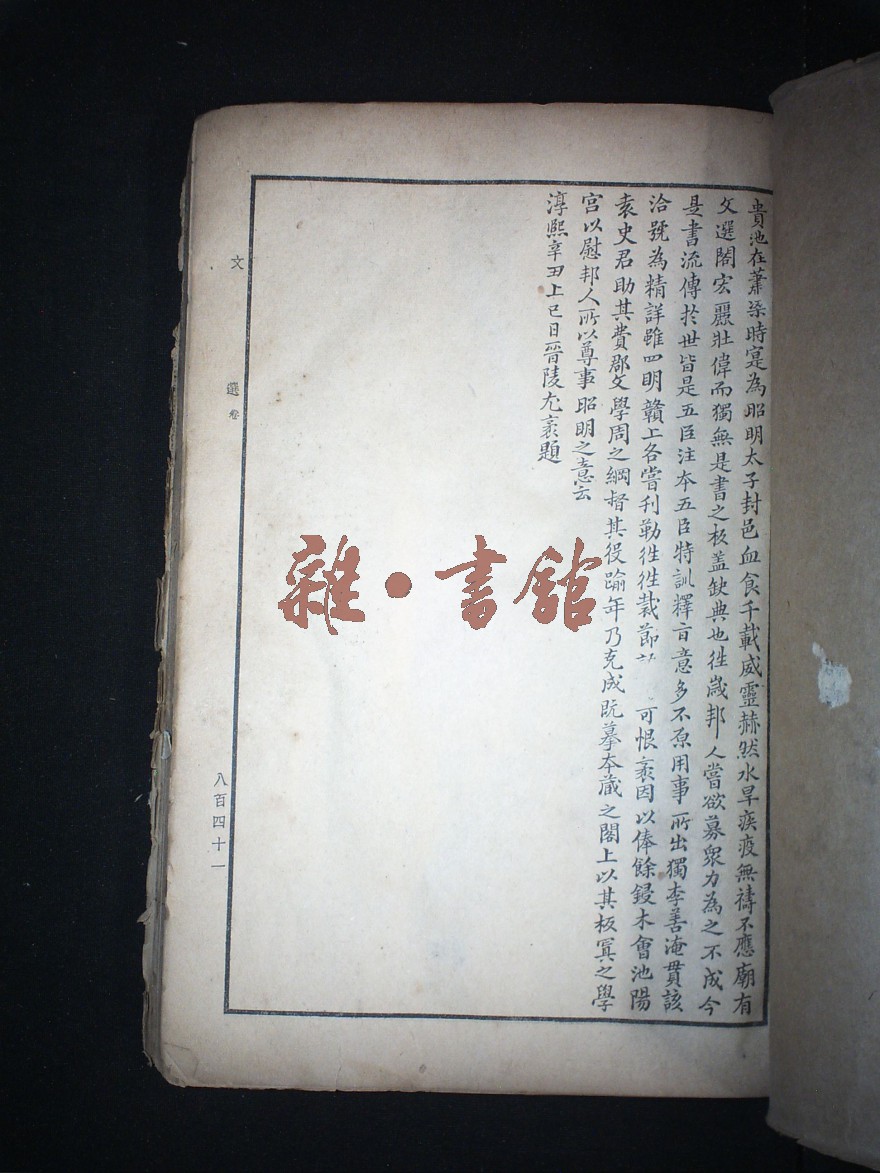 貴池在蕭梁時寔為昭明太子封邑血食千載威靈赫然水旱疾疫無禱不應廟有
文選閣宏麗壯偉而獨無是書之板蓋缺典也往歲邦人嘗欲募衆力為之不成今
是書流傳於世皆是五臣注本五臣特訓釋旨意多不原用事所出獨李善淹貫該
洽號為精詳雖四明贛上各嘗刊勒往往裁節可恨袤因以俸餘鋟木會池陽
袁史君助其費郡文學周之綱督其役踰年乃克成既摹本藏之閣上以其板寘之學
宮以慰邦人所以尊事昭明之意云
淳熙辛丑上巳日晉陵尤袤題
文選卷
八百四十一
雜·書館